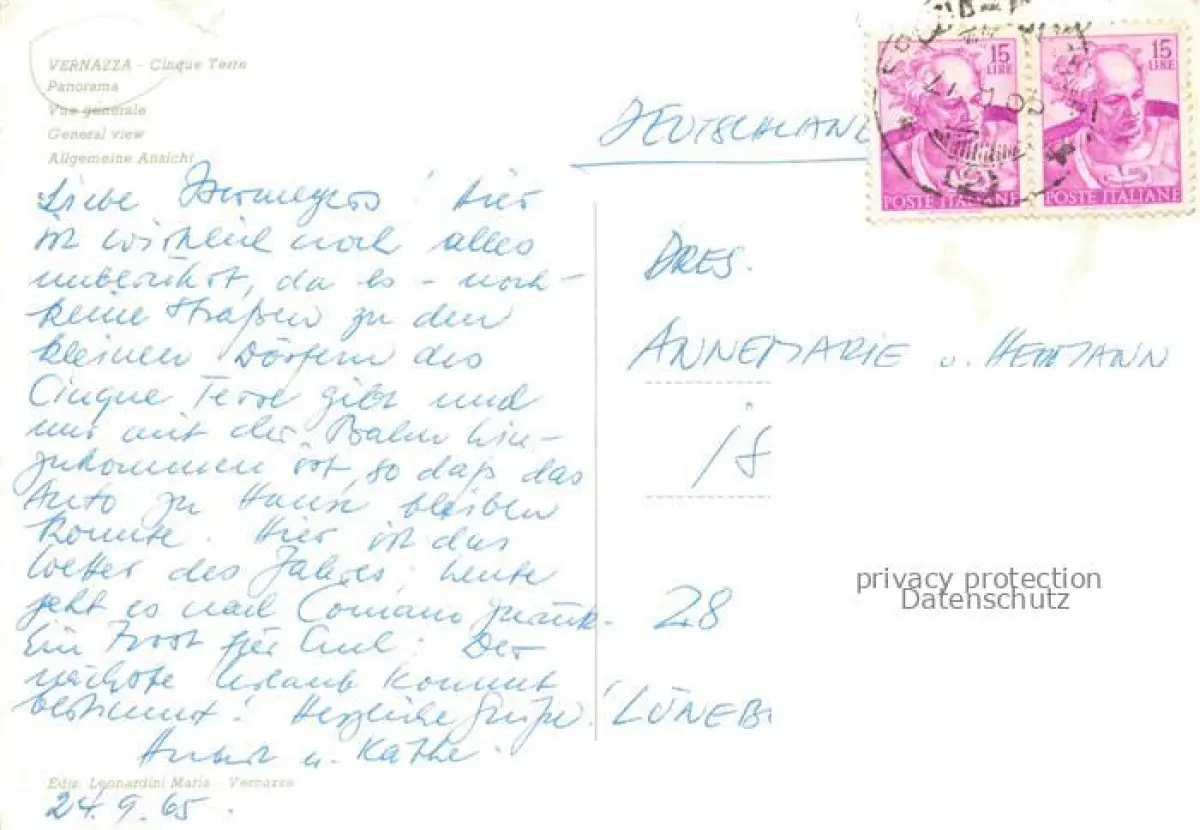 VERNAZZA - Cinque Terre
Panorama
Vue générale
General view
Allgemeine Ansicht
Liebe ! Hier
ist wirklich noch alles
unberührt, da es - noch -
keine Straßen zu den
kleinen Dörfern des
Cinque Terre gibt und
nur mit der Bahn hin-
zukommen ist, so daß das
Auto zu Hause bleiben
konnte. Hier ist das
Wetter des Jahres; heute
geht es nach Comano zurück.
Ein Trost für Euch: Der
nächste Urlaub kommt
bestimmt! Herzliche Grüße!
u. Käthe.
Ediz. Leonardini Maria - Vernazza
24.9.65.
DEUTSCHLAND
15 LIRE
POSTE ITALIANE
15 LIRE
POSTE ITALIANE
DRES.
ANNEMARIE u. HERMANN
28
LÜNEB
privacy protection
Datenschutz